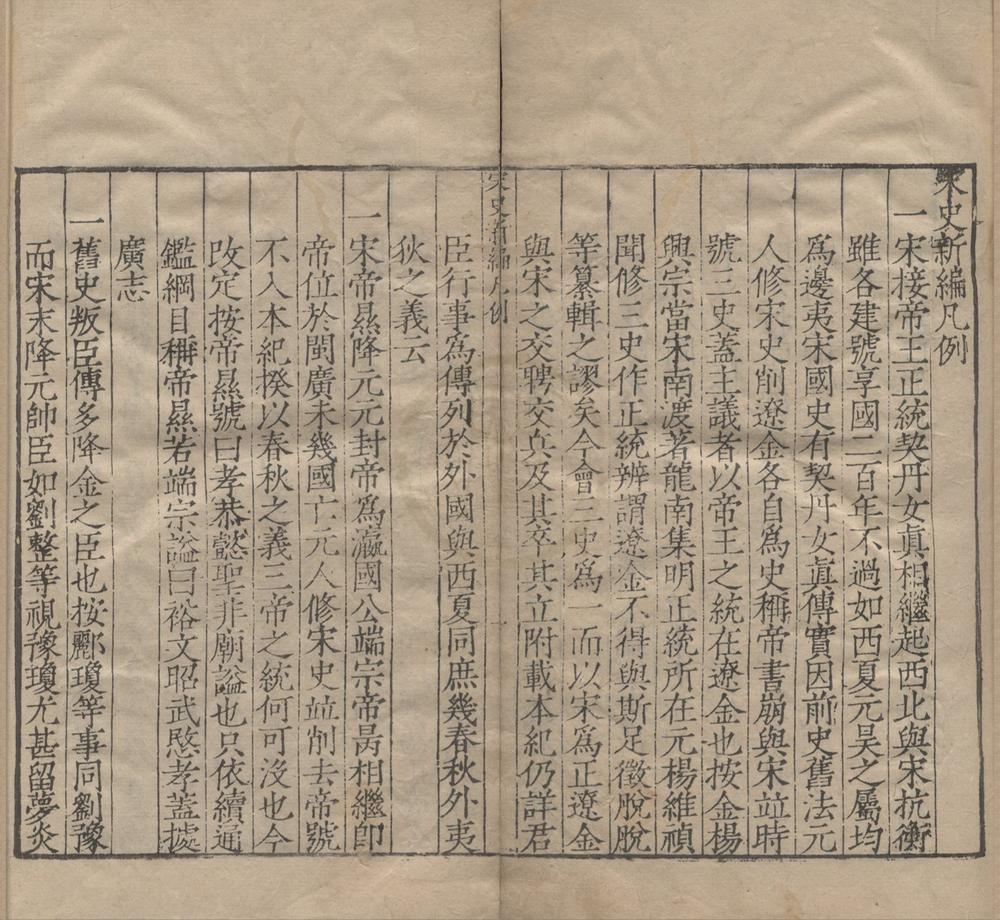 宋史新編凡例
一宋接帝王正統契丹女眞相繼起西北與宋抗衡
雖各建號享國二百年不過如西夏元昊之屬均
爲邊夷宋國史有契丹女眞傳實因前史舊法元
人修宋史削遼金各自爲史稱帝書崩與宋竝時
號三史蓋主議者以帝王之統在遼金也按金楊
興宗當宋南渡著龍南集明正統所在元楊維禎
聞修三史作正統辨謂遼金不得與斯足徵脫脫
等纂輯之謬矣今會三史爲一而以宋爲正遼金
與宋之交聘交兵及其卒其立附載本紀仍詳君
宋史新編凡例
一
臣行事爲傳列於外國與西夏同庶幾春秋外夷
狄之義云
一宋帝㬎降元元封帝爲瀛國公端宗帝昺相繼卽
帝位於閩廣未幾國亡元人修宋史竝削去帝號
不入本紀揆以春秋之義三帝之統何可沒也今
改定按帝㬎號曰孝恭懿聖非廟謚也只依續通
鑑綱目稱帝㬎若端宗謚曰裕文昭武愍孝蓋據
廣志
一舊史叛臣傳多降金之臣也按酈瓊等事同劉豫
而宋末降元帥臣如劉整等視豫瓊尤甚留夢炎